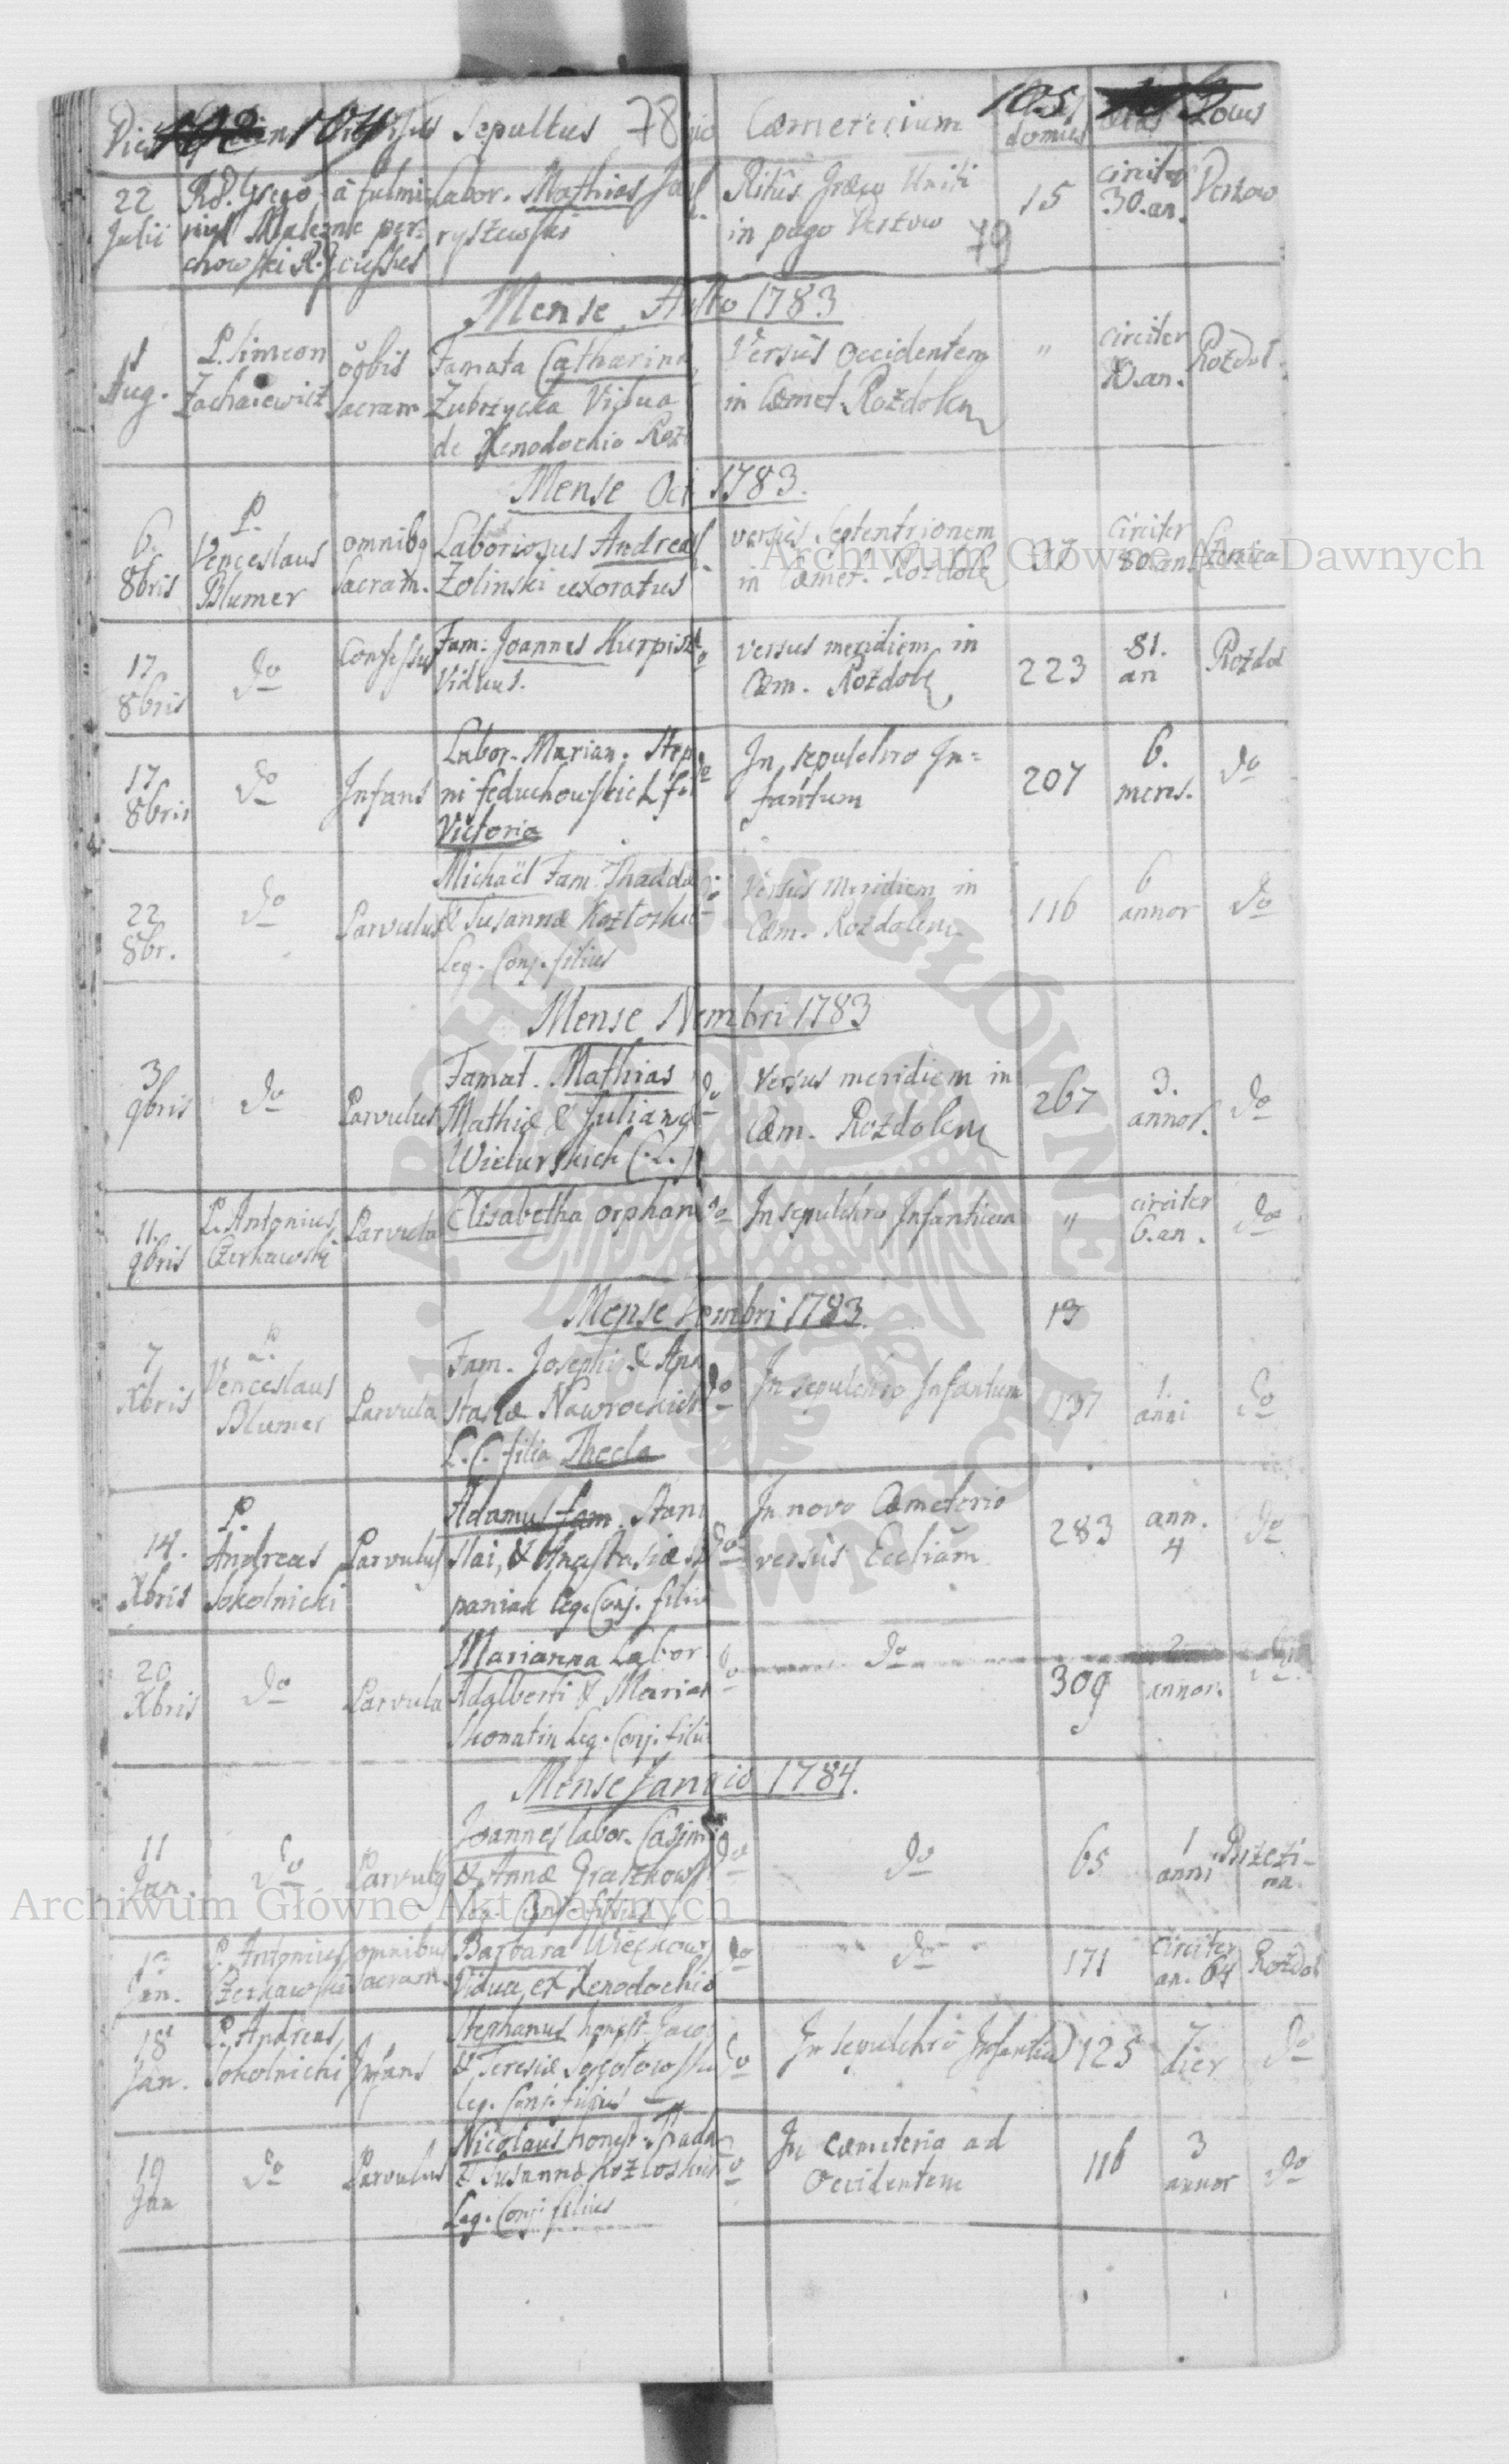 Dies 104 Sepultus 78 Cæmeterium 105 domus Locus
22 Julii
Rd. Grego à fulmi Labor. Mathias
ryszewski
Ritûs Græco Uniti
in pago Verzow 79
15
circiter
30. an.
Verzow
Mense Augto 1783
Aug.
P. Simeon
Zachaiewicz
oōbis
sacram
Famata Catharina
Zubrzycka Vidua
de Xenodochio Rozd
Versûs Occidentem
in Cæmet. Rozdolen
"
circiter
an.
Rozdol
Mense Oct 1783.
6
8bris
P.
Venceslaus
Blumer
omnibq
sacram.
Laboriosus Andreas
Zolinski uxoratus
versûs Septentrionem
in Cæmet. Rozdole
37
circiter
80. an.
17
8bris
do
Confessus
Fam: Joannes Kurpisz
Viduus.
do
versus meridiem in
Cæm. Rozdole
223
81.
an
Rozdol
17
8bris
do
Infans
Labor. Marian. Step
ni Feduchowskich fil
Victoria
do
In sepulchro In=
fantum
207
6.
mens.
do
22
8br.
do
Parvulus
Michaël Fam. Thaddæ
& Susannæ Kozłoski
Leg. Conj. filius
do
Versûs Meridiem in
Cæm. Rozdolen
116
6
annor
do
Mense Novembri 1783
3
9bris
do
Parvulus
Famat. Mathias
Mathiæ & Julianæ
Wielurskich C. L.
do
Versus meridiem in
Cæm. Rozdolen
267
3.
annor.
do
11.
9bris
P. Antonius
Czerkawski
Parvula
Elisabetha orphan
do
In sepulchro Infantium
"
circiter
6. an.
do
Mense Xembri 1783. 13
7
Xbris
P.
Venceslaus
Blumer
Parvula
Fam. Josephi & Ana
stasiæ Nawrockich
L. C. filia Thecla
do
In sepulchro Infantum
137
1.
anni
do
14.
Xbris
P.
Andreas
Sokolnicki
Parvulus
Adamus fam. Stani
slai, & Anastasiæ
paniak leg. Conj. filiu
do
In novo Cæmeterio
versûs Eccliam
283
ann.
4
do
20
Xbris
do
Parvula
Marianna Labor
Adalberti & Marian
Leg. Conj. filia
do
do
309
2
annor.
Mense Januario 1784.
11
Jan.
do
Parvulq
Joannes labor. Casimi
& Annæ Graszkows
Leg. Conj. filius
do
do
65
1
anni
Brzezi-
na
13
Jan.
P. Antonius
Czerkawski
omnibus
sacram.
Barbara Więckows
Vidua, ex Xenodochio
do
do
171
circiter
an. 64
Rozdol
18
Jan.
P. Andreas
Sokolnicki
Infans
Stephanus honest. Jaco
& Teresiæ Sokołowski
leg. Conj. filius
do
In sepulchro Infantiu
125
7
dier
do
19
Jan
do
Parvulus
Nicolaus honest. Thada
& Susannæ Kozłoski
Leg. Conj. filius
do
In cæmeterio ad
Occidentem
116
3
annor
do
Archiwum Główne Akt Dawnych
Archiwum Główne Akt Dawnych